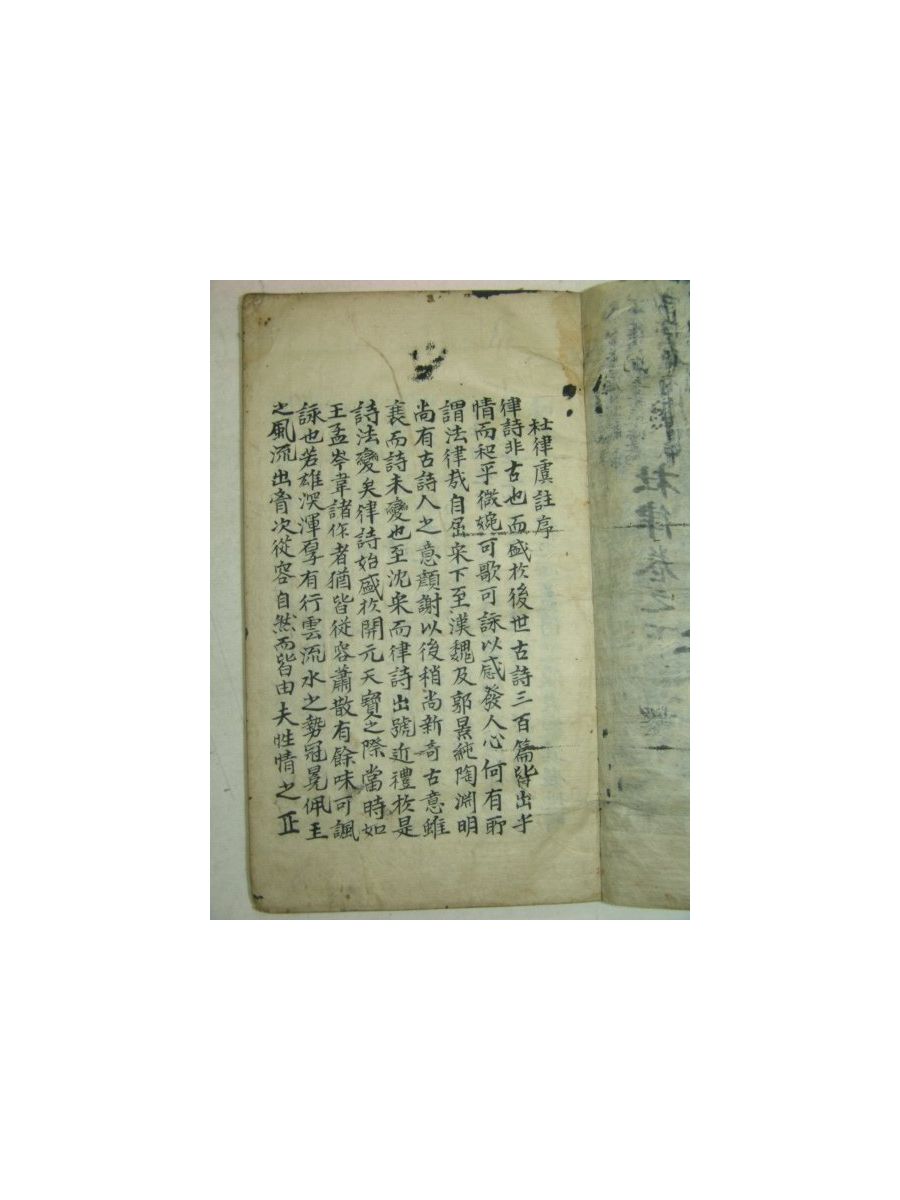 杜律虞註序
律詩非古也而盛於後世古詩三百篇皆出乎
情而和平微婉可歌可詠以感發人心何有所
謂法律哉自屈宋下至漢魏及郭景純陶淵明
尚有古詩人之意顏謝以後稍尚新奇古意雖
衰而詩未變也至沈宋而律詩出號近體於是
詩法變矣律詩始盛於開元天寶之際當時如
王孟岑韋諸作者猶皆從容蕭散有餘味可諷
詠也若雄深渾厚有行雲流水之勢冠冕佩玉
之風流出胷次從容自然而皆由夫性情之正
杜律卷之